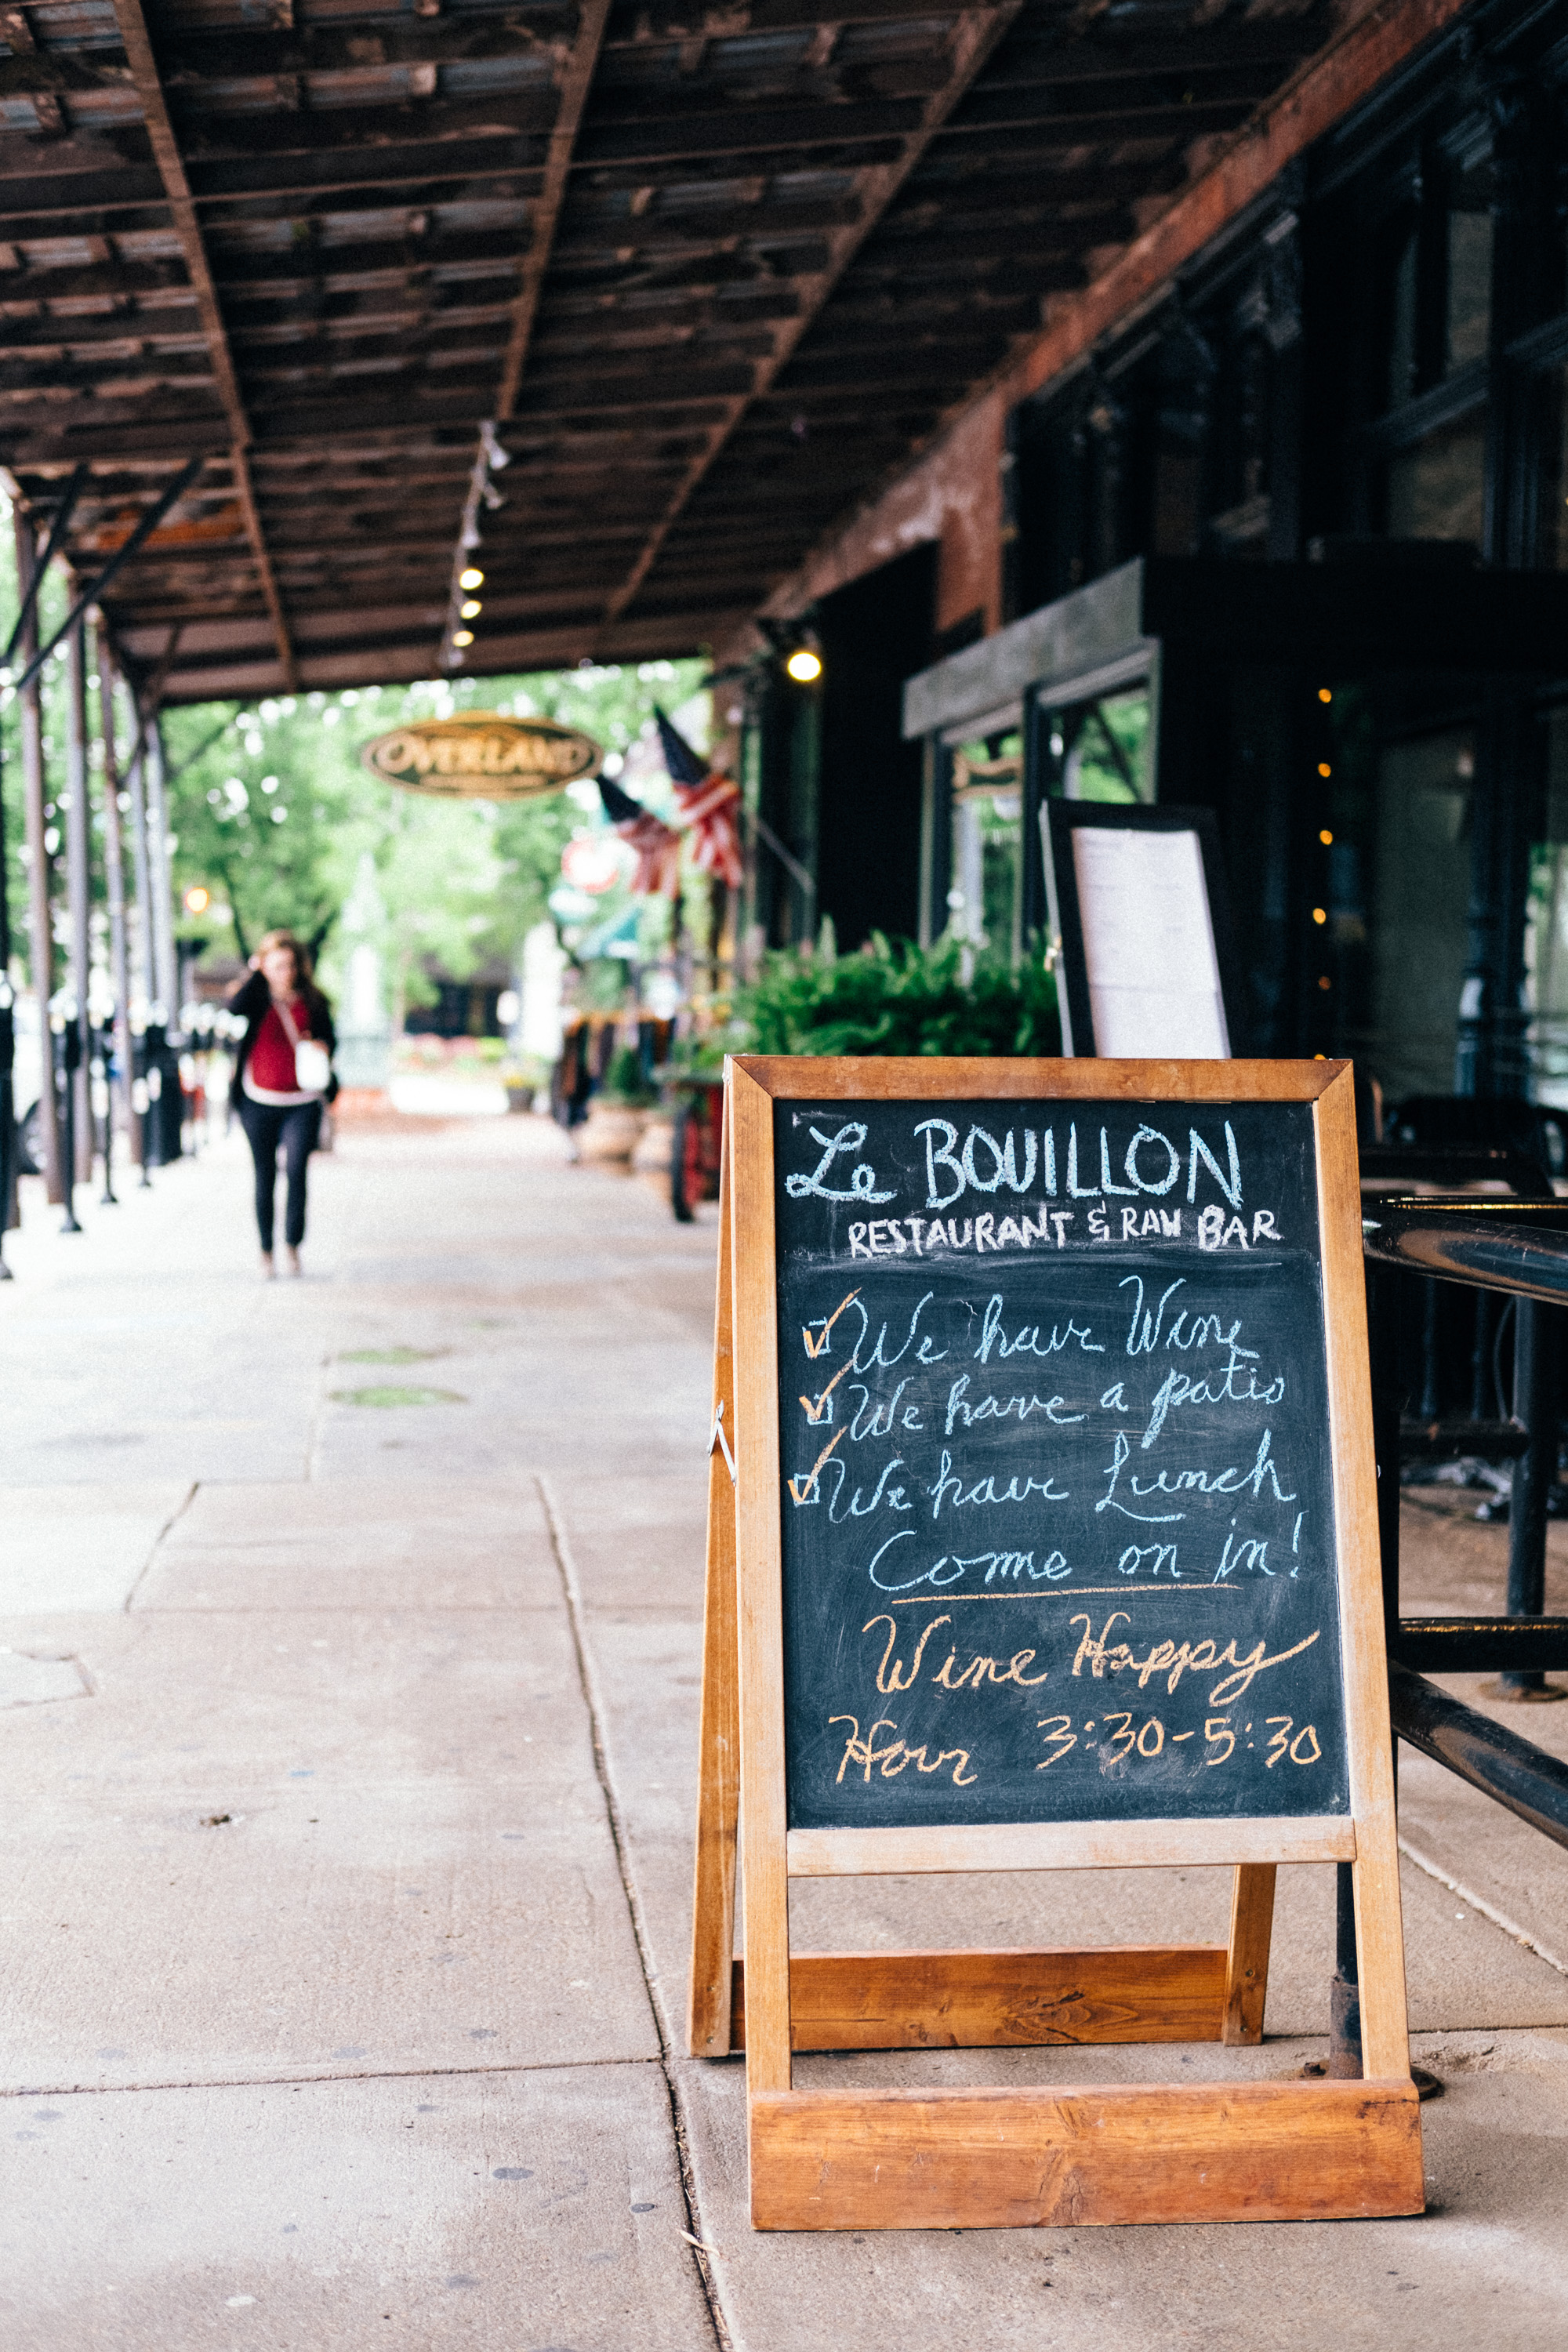 OVERLAND
Le BOUILLON
RESTAURANT & RAW BAR
We have Wine
We have a patio
We have Lunch
Come on in!
Wine Happy
Hour 3:30-5:30